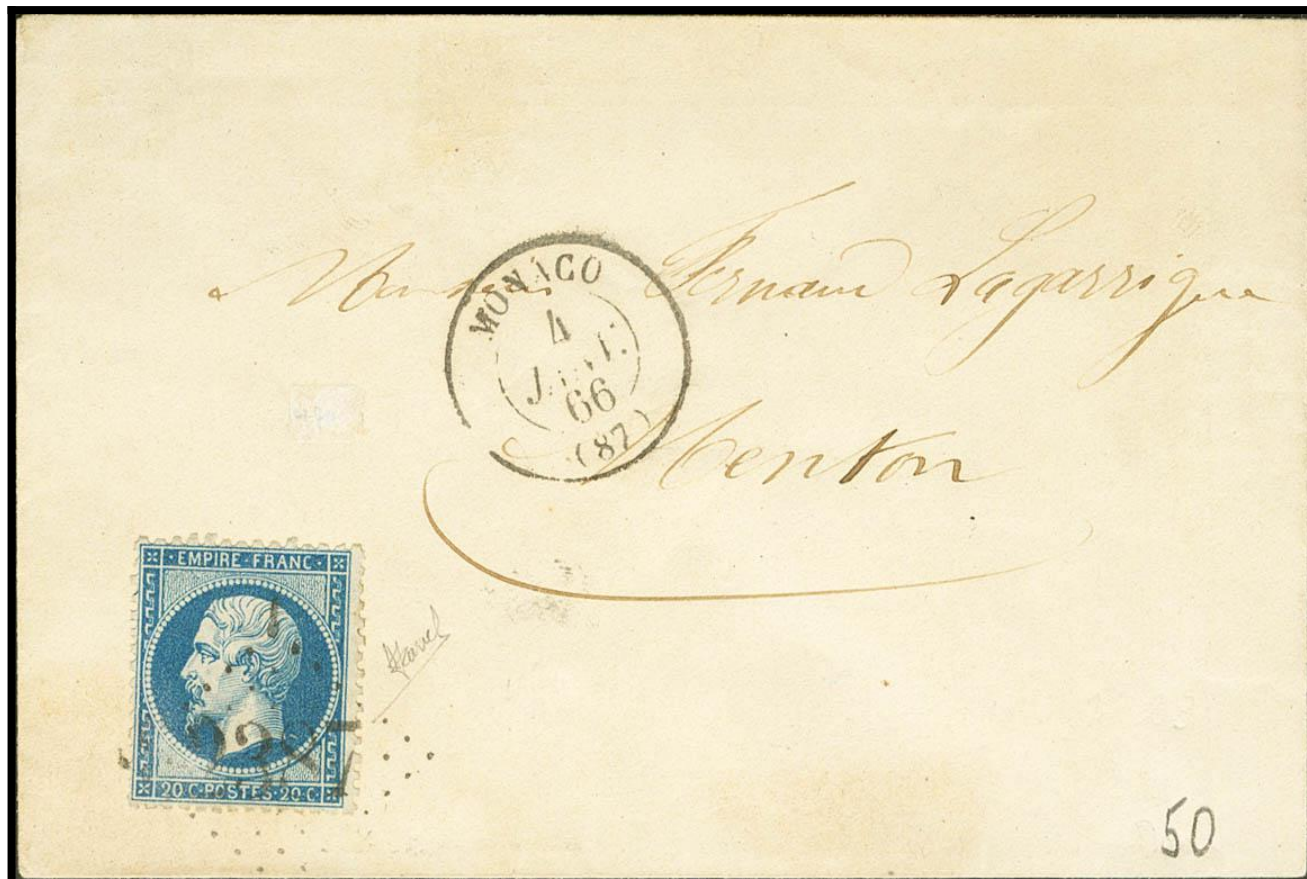 Monsieur Fernand Lagarrigue
MONACO
4
JANV.
66
(87)
Menton
EMPIRE·FRANC·
2387
20·C·POSTES·20·C·
50